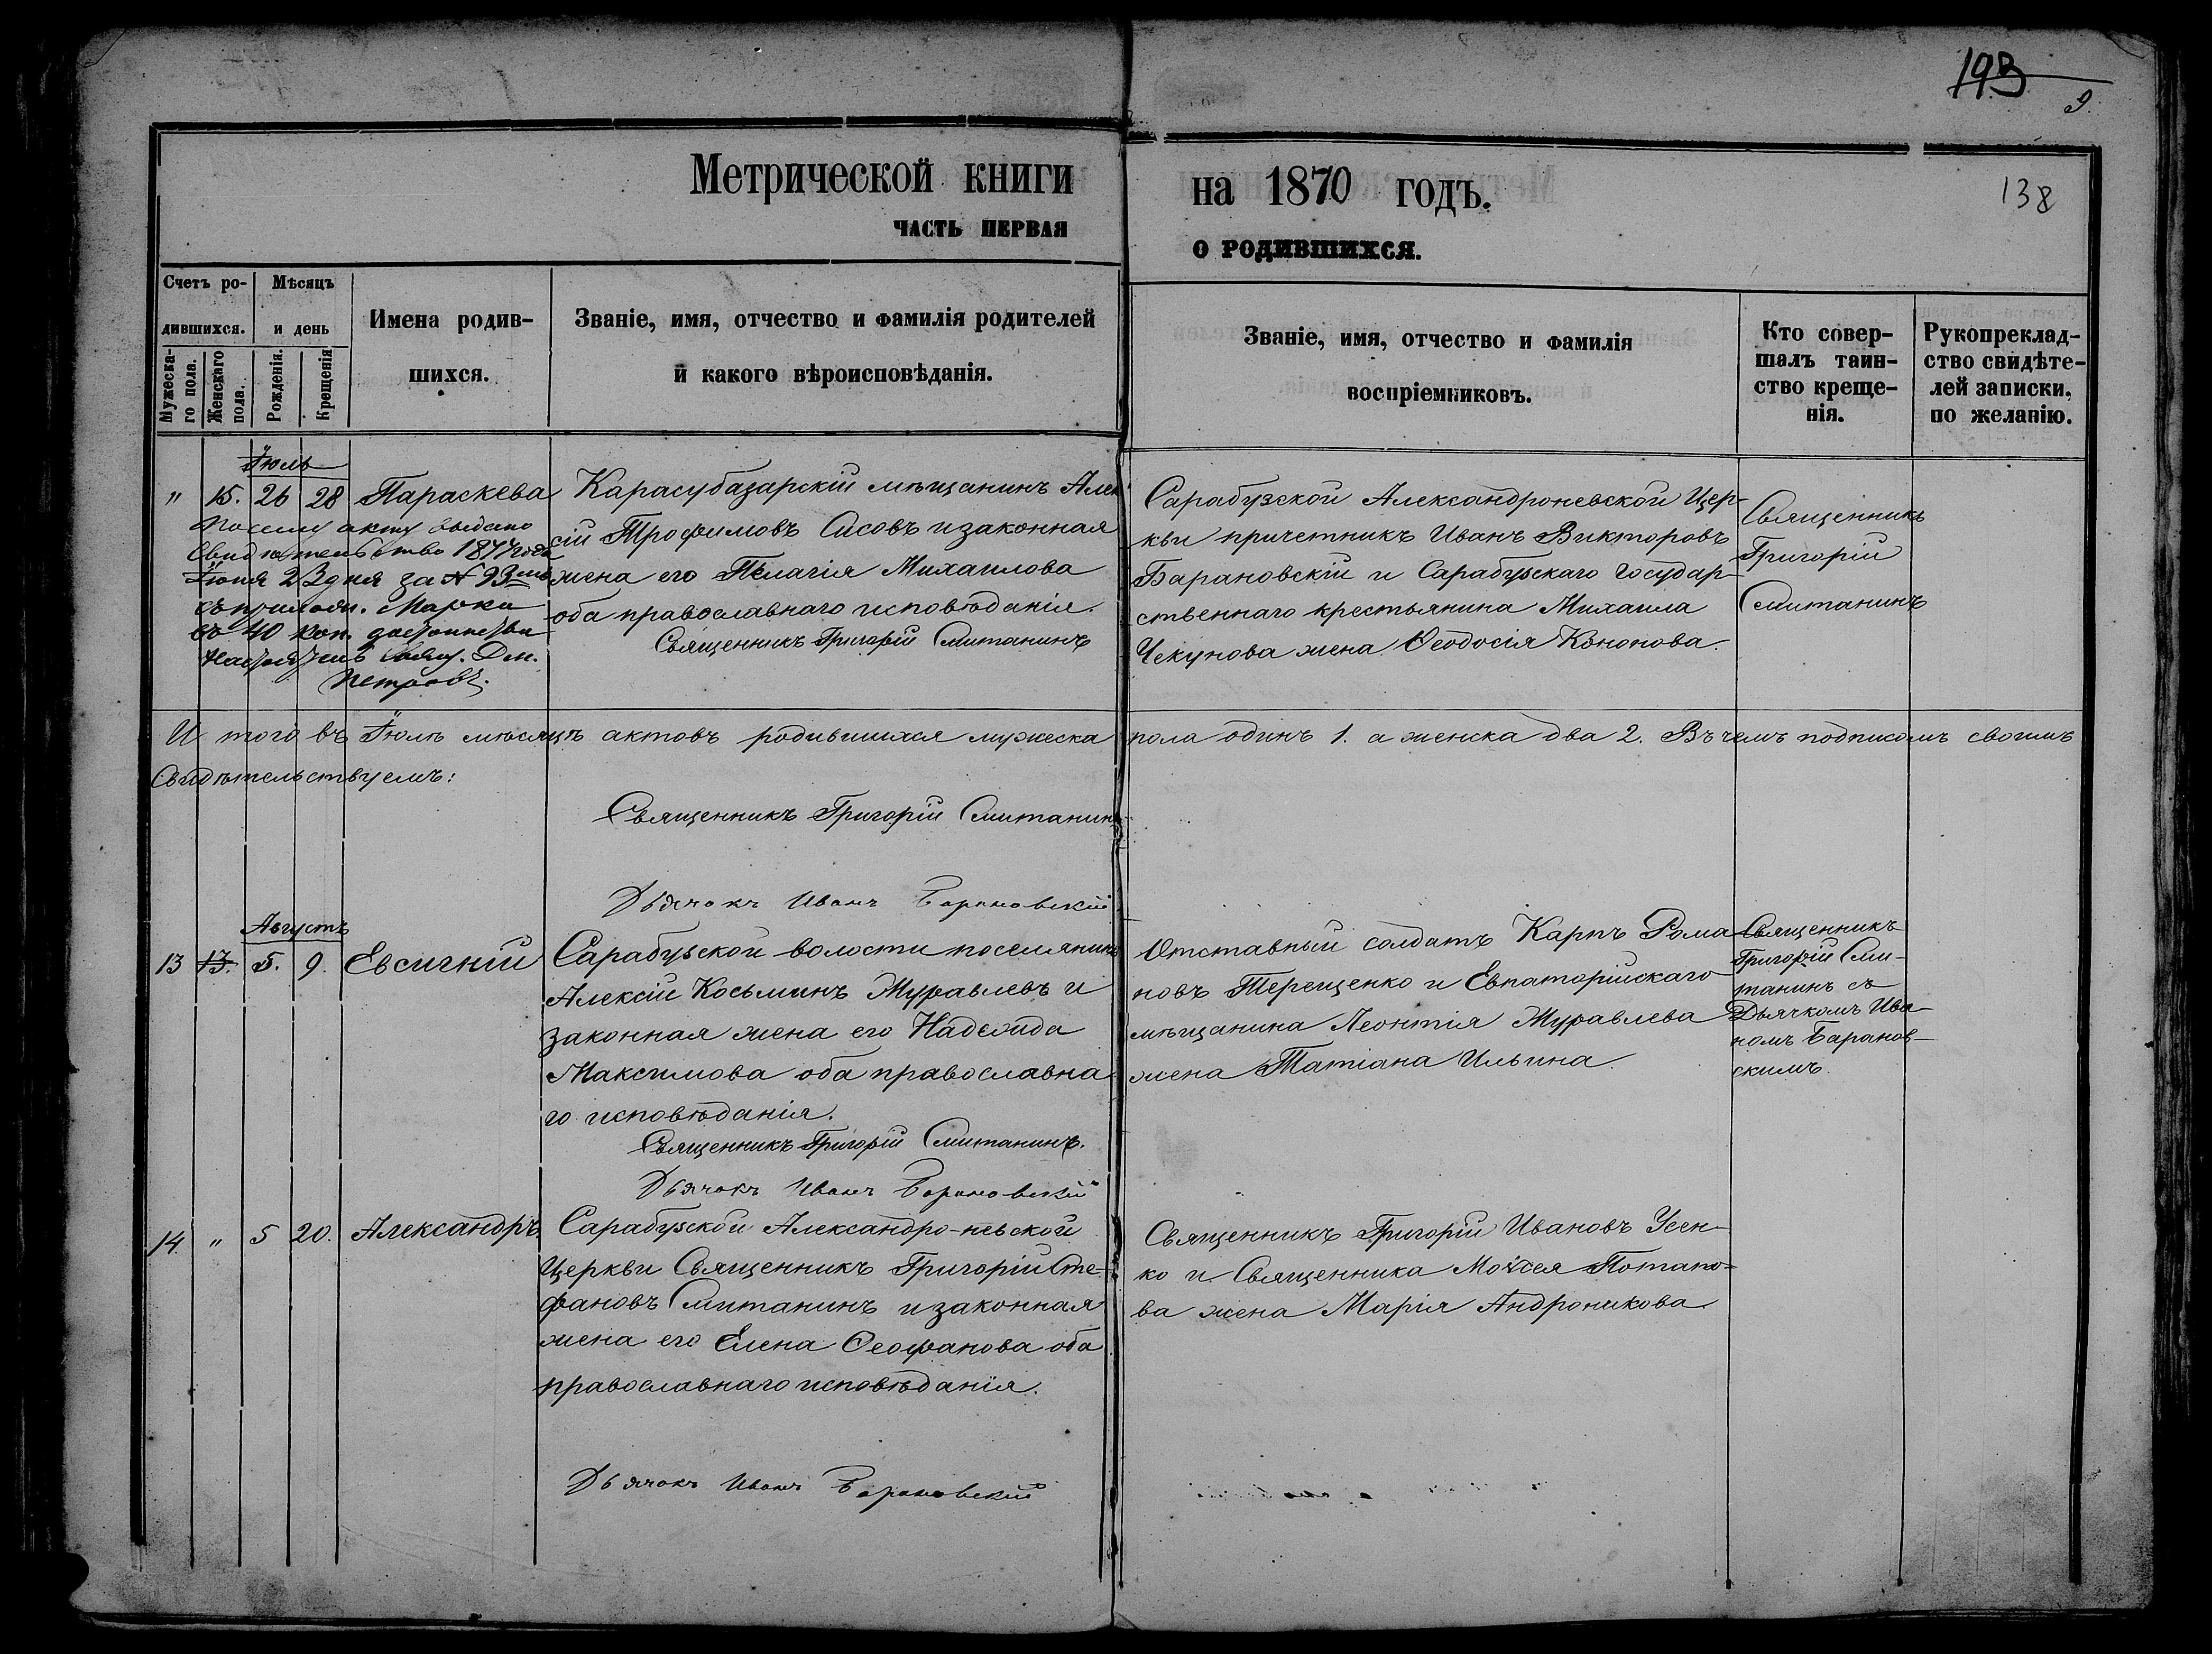 193
9.
Метрической книги
ЧАСТЬ ПЕРВАЯ
на 1870 годъ.
о родившихся.
138
Счетъ ро-
дившихся.
Мужеска-
го пола.
Женскаго
пола.
Мѣсяцъ
и день
Рожденія.
Крещенія
Имена родив-
шихся.
Званіе, имя, отчество и фамилія родителей
и какого вѣроисповѣданія.
Званіе, имя, отчество и фамилія
воспріемниковъ.
Кто совер-
шалъ таин-
ство креще-
нія.
Рукопреклад-
ство свидѣте-
лей записки.
по желанію.
Іюль
" 15. 26 28 Параскева
По сему акту выдано
Свидѣтельство 1877 года
Іюня 23 дня за № 93
Марка
въ 40 коп. достоинства
Петровъ.
Карасубазарскій мѣщанинъ Алек
сій Трофимовъ Сисовъ и законная
жена его Пелагія Михаилова
оба православнаго исповѣданія.
Священникъ Григорій Смитанинъ
Сарабузской Александроневской Цер-
кви причетникъ Иванъ Викторовъ
Барановскій и Сарабузскаго Государ-
ственнаго крестьянина Михаила
Чекунова жена Ѳеодосія Кононова.
Священникъ
Григорій
Смитанинъ
И того въ Іюлѣ мѣсяцѣ актовъ родившихся мужеска пола одинъ 1. а женска два 2. Въ чемъ подписомъ своимъ
Свидѣтельствуемъ:
Священникъ Григорій Смитанин
Дьячокъ Иванъ Барановскій
Августъ
13 13. 5. 9. Евсигній
Сарабузской волости поселянинъ
Алексій Косьминъ Журавлевъ и
законная жена его Надежда
Максимова оба православна
го исповѣданія.
Священникъ Григорій Смитанинъ.
Дьячокъ Иванъ Барановскій
Отставный солдатъ Карпъ Рома
новъ Терещенко и Евпаторійскаго
мѣщанина Леонтія Журавлева
жена Татіана Ильина.
Священникъ
Григорій Сми-
танинъ съ
Дьячкомъ Ива-
номъ Баранов-
скимъ.
14. " 5 20. Александръ.
Сарабузской Александро-невской
Церкви Священникъ Григорій Сте-
фановъ Смитанинъ и законная
жена его Елена Ѳеофанова оба
православнаго исповѣданія.
Дьячокъ Иванъ Барановскій
Священникъ Григорій Ивановъ Усен-
ко и Священника Моѵсея Потапо-
ва жена Марія Андроникова